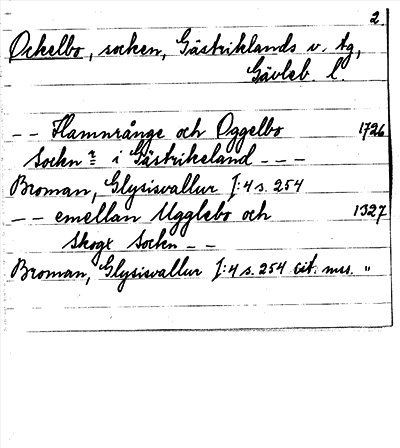 2.
Ockelbo, socken, Gästriklands v. tg,
Gävleb. l.
-- Hamnrånge och Oggelbo 1726
Sockn:r i Gästrikeland ---
Broman, Glysisvallur I:4 s. 254
-- emellan Ugglebo och 1327
Skogx Sockn --
Broman, Glysisvallur I:4 s. 254 cit. mus. "